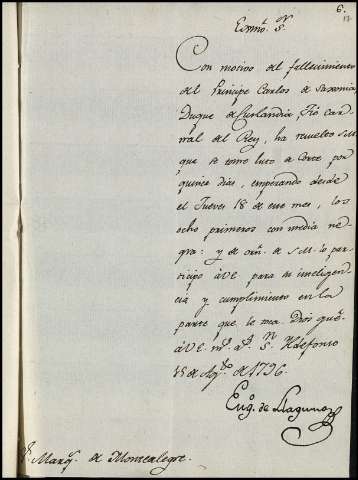 6.
Exmo. Sr.
Con motivo del fallecimiento
del Principe Carlos de Saxonia
Duque de Curlandia, Tio car-
nal del Rey, ha resuelto S.M.
que se tome luto de Corte por
quince dias, empezando desde
el Jueves 18 de este mes, los
ocho primeros con media ne-
gra: y de orn. de S.M. lo par-
ticipo á V.E. para su inteligen-
cia y cumplimiento en la
parte que le toca. Dios gue.
á V.E. ms. as. Sn. Ildefonso
15 de Agto. de 1796.
Eugo. de Llaguno
Sr. Marqs. de Montealegre.